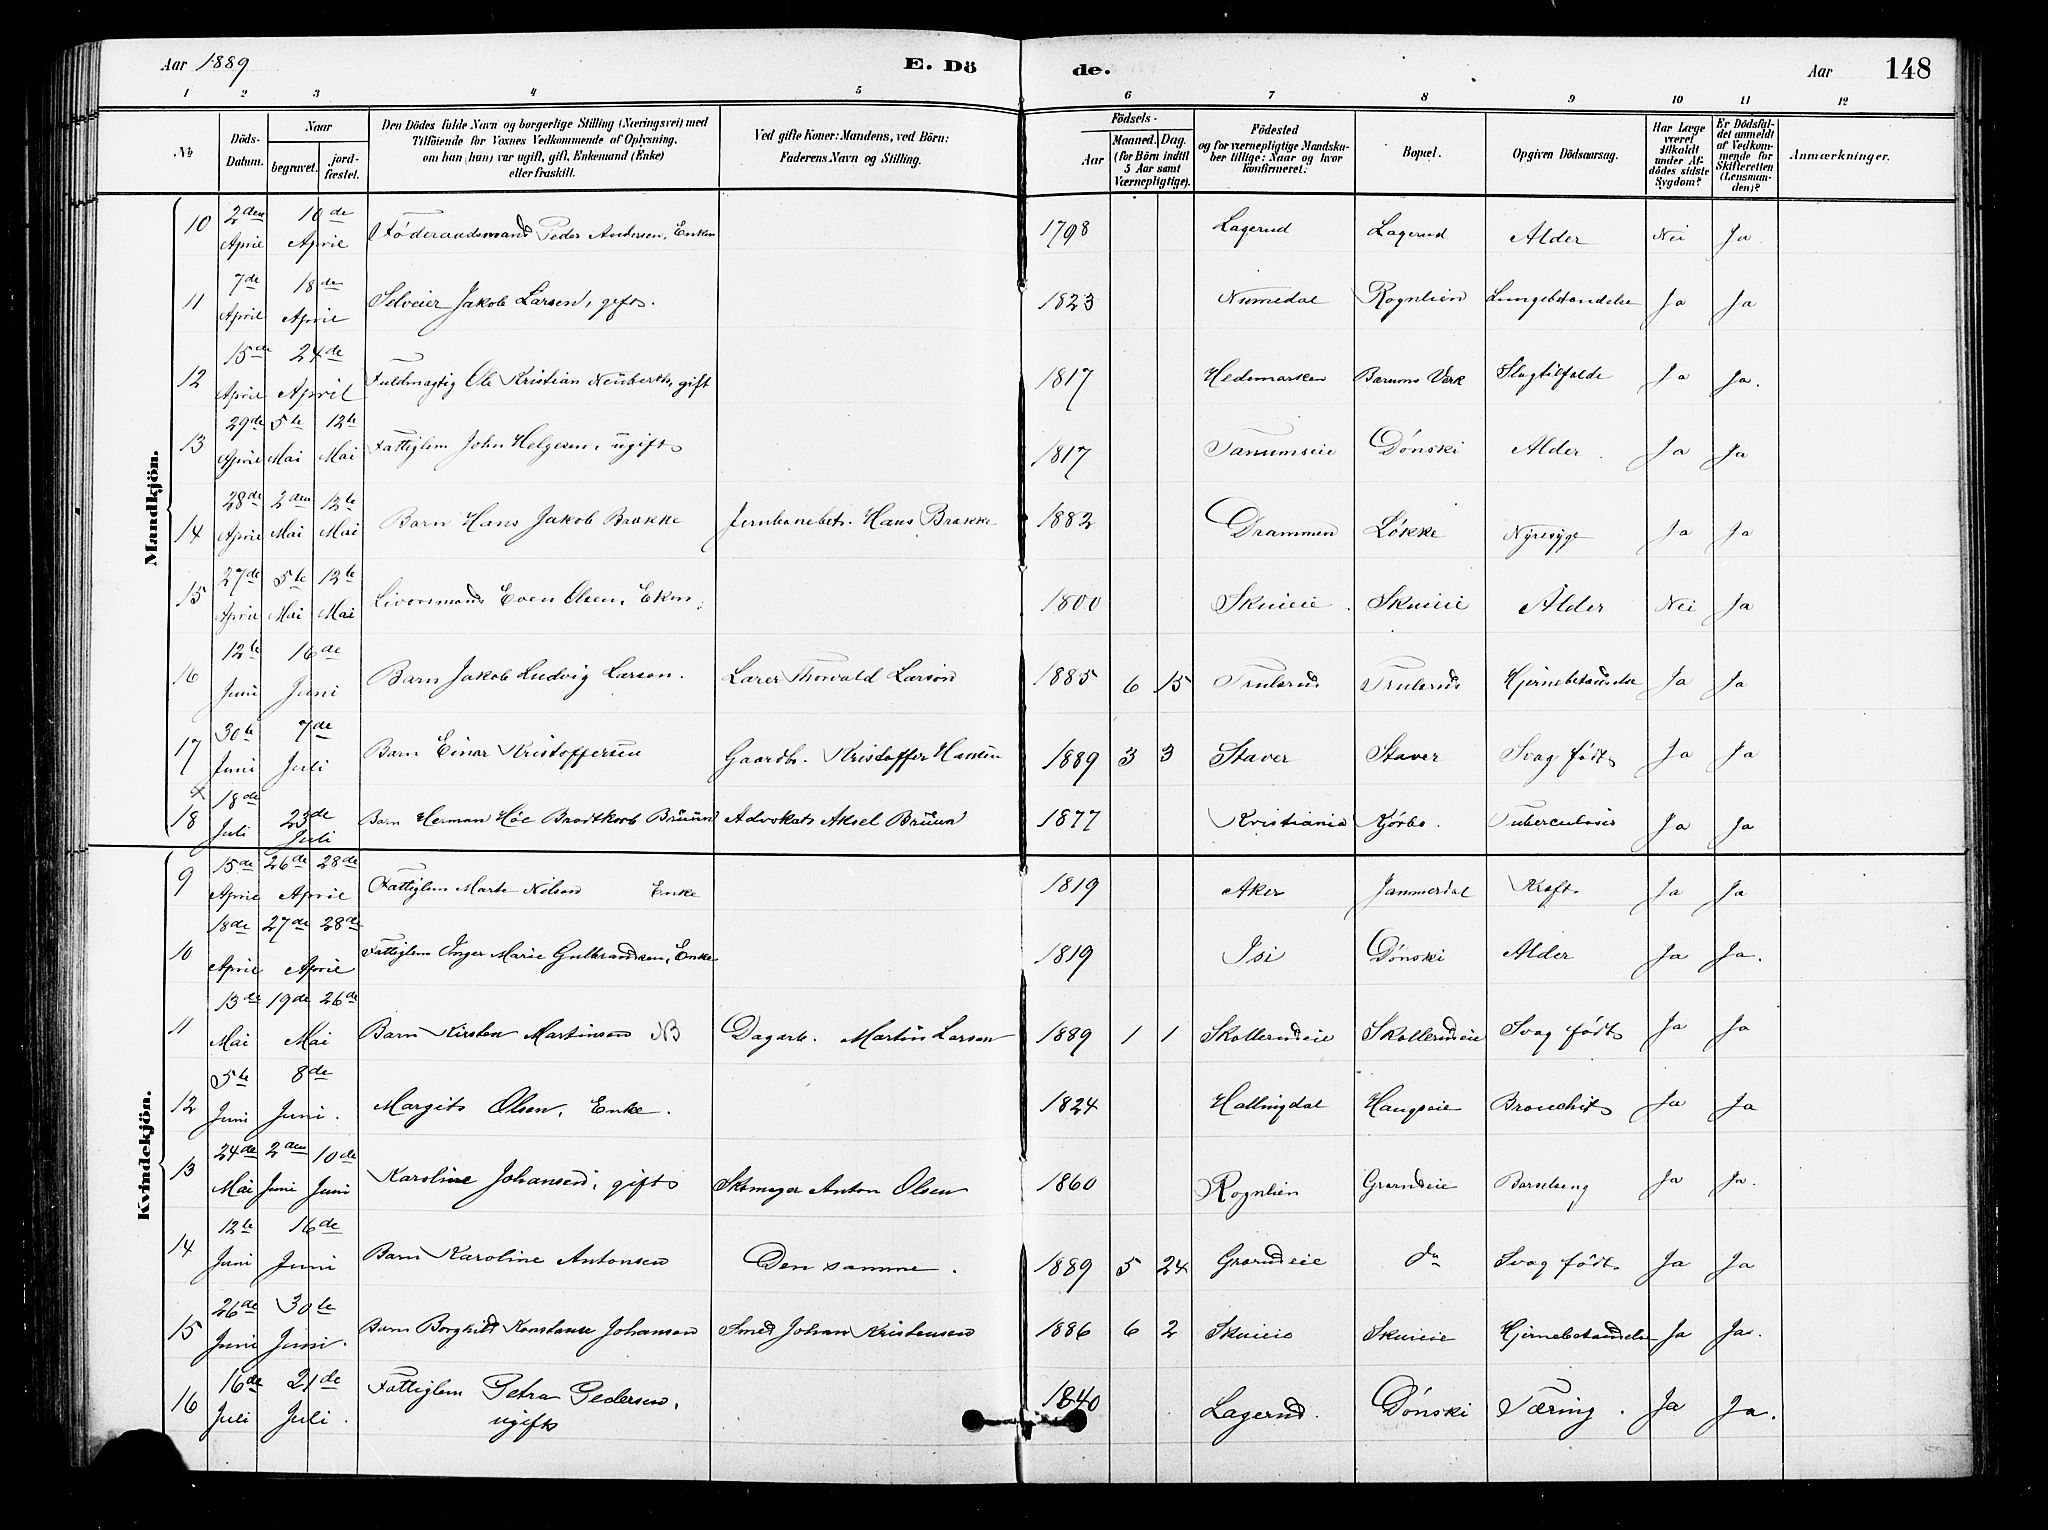 Aar 1889 E. Dö de. Aar 148
1 2 3 4 5 6 7 8 9 10 11 12
No Döds-Datum. Naar begravet. jord-fæstet. Den Dödes fulde Navn og borgerlige Stilling (Næringsvei) med Tilföiende for Voxnes Vedkommende af Oplysning, om han (hun) var ugift, gift, Enkemand (Enke) eller fraskilt. Ved gifte Koner: Mandens, ved Börn: Faderens Navn og Stilling. Födsels- Aar Maaned. Dag. (for Börn indtil 5 Aar samt Værnepligtige). Födested og for værnepligtige Mandsku-ber tillige: Naar og hvor konfirmeret. Bopæl. Opgiven Dödsaarsag. Har Læge været tilkaldt under Af-dödes sidste Sygdom? Er Dödsfal-det anmeldt af Vedkom-mende for Skifteretten (Lensman-den)? Anmærkninger.
Mandkjön.
10 2den April 10de April Föderaadsmand Peder Andersen, Enkm 1798 Lagerud Lagerud Alder Nei Ja
11 7de April 18de April Selveier Jakob Larsen, gift. 1823 Numedal Rognlien Lungebetændelse Ja Ja
12 15de April 24de April Fuldmægtig Ole Kristian Neuberth, gift 1817 Hedemarken Bærums Værk Slagtilfælde Ja Ja.
13 29de April 5te Mai 12te Mai Fattiglem John Helgesen, ugift 1817 Tanumseie Dønski Alder. Ja Ja
14 28de April 2den Mai 12te Mai Barn Hans Jakob Brække Jernbanebetj. Hans Brække 1882 Drammen Løkke Nyresyge Ja Ja
15 27de April 5te Mai 12te Mai Even Olsen, Ekm. 1800 Skuieie. Skuieie Alder Nei Ja
16 12te Juni 16de Juni Barn Jakob Ludvig Larsen. Lærer Thorvald Larsen 1885 6 15 Trulsrud Trulsrud Hjernebetændelse Ja Ja
17 30te Juni 7de Juli Barn Einar Kristoffersen Gaardbr. Kristoffer Hansen 1889 3 3 Staver Staver Svag født Ja Ja
18 18de Juli 23de Juli Barn Herman Høe Brodtkorb Bruun Advokat Aksel Bruun 1877 Kristiania Kjørbo. Tuberculosis Ja Ja
Kvindekjön.
9 15de April 26de 28de April Fattiglem Marte Nilsen Enke 1819 Aker Jammerdal Kræft. Ja Ja
10 18de April 27de 28de April Fattiglem Inger Marie Gulbrandsen, Enke 1819 Isi Dønski Alder Ja Ja.
11 13de Mai 19de 26de Mai Barn Kirsten Martinsen NB Dagarb. Martin Larsen 1889 1 1 Skollerudeie Skollerudeie Svag født Ja Ja
12 5te Juni 8de Juni. Margit Olsen, Enke. 1824 Hallingdal Haugseie Bronchit Ja Ja
13 24de Mai 2den Juni 10de Juni Karoline Johansen, gift Skomager Anton Olsen 1860 Rognlien Grorudeie Barselseng Ja Ja.
14 12te Juni 16de Juni Barn Karoline Antonsen Den samme. 1889 5 24 Grorudeie do Svag født. Ja Ja
15 26de Juni 30te Juni. Barn Borghild Konstanse Johansen Smed Johan Kristensen 1886 6 2 Skuieie Skuieie Hjernebetændelse Ja Ja.
16 16de Juli 21de Juli. Fattiglem Petra Pedersen, ugift 1840 Lagerud. Dønski Tæring. Ja Ja.